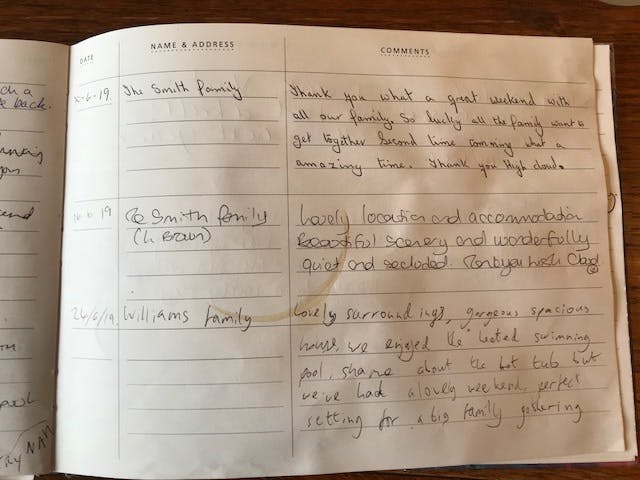 DATE NAME & ADDRESS COMMENTS
ch a
e back.
6.19. The Smith family Thank you what a great weekend with
all our family. So lucky all the family want to
get together Second time comming what a
amazing time. Thank you High cloud.
6 19 The Smith family Lovely location and accommodation
(L Brown) Beautiful scenery and wonderfully
quiet and secluded. Thankyou High Cloud
24/6/19. Williams family Lovely surroundings, gorgeous spacious
house, we enjoyed the heated swimming
pool, shame about the hot tub but
we've had a lovely weekend, perfect
setting for a big family gathering